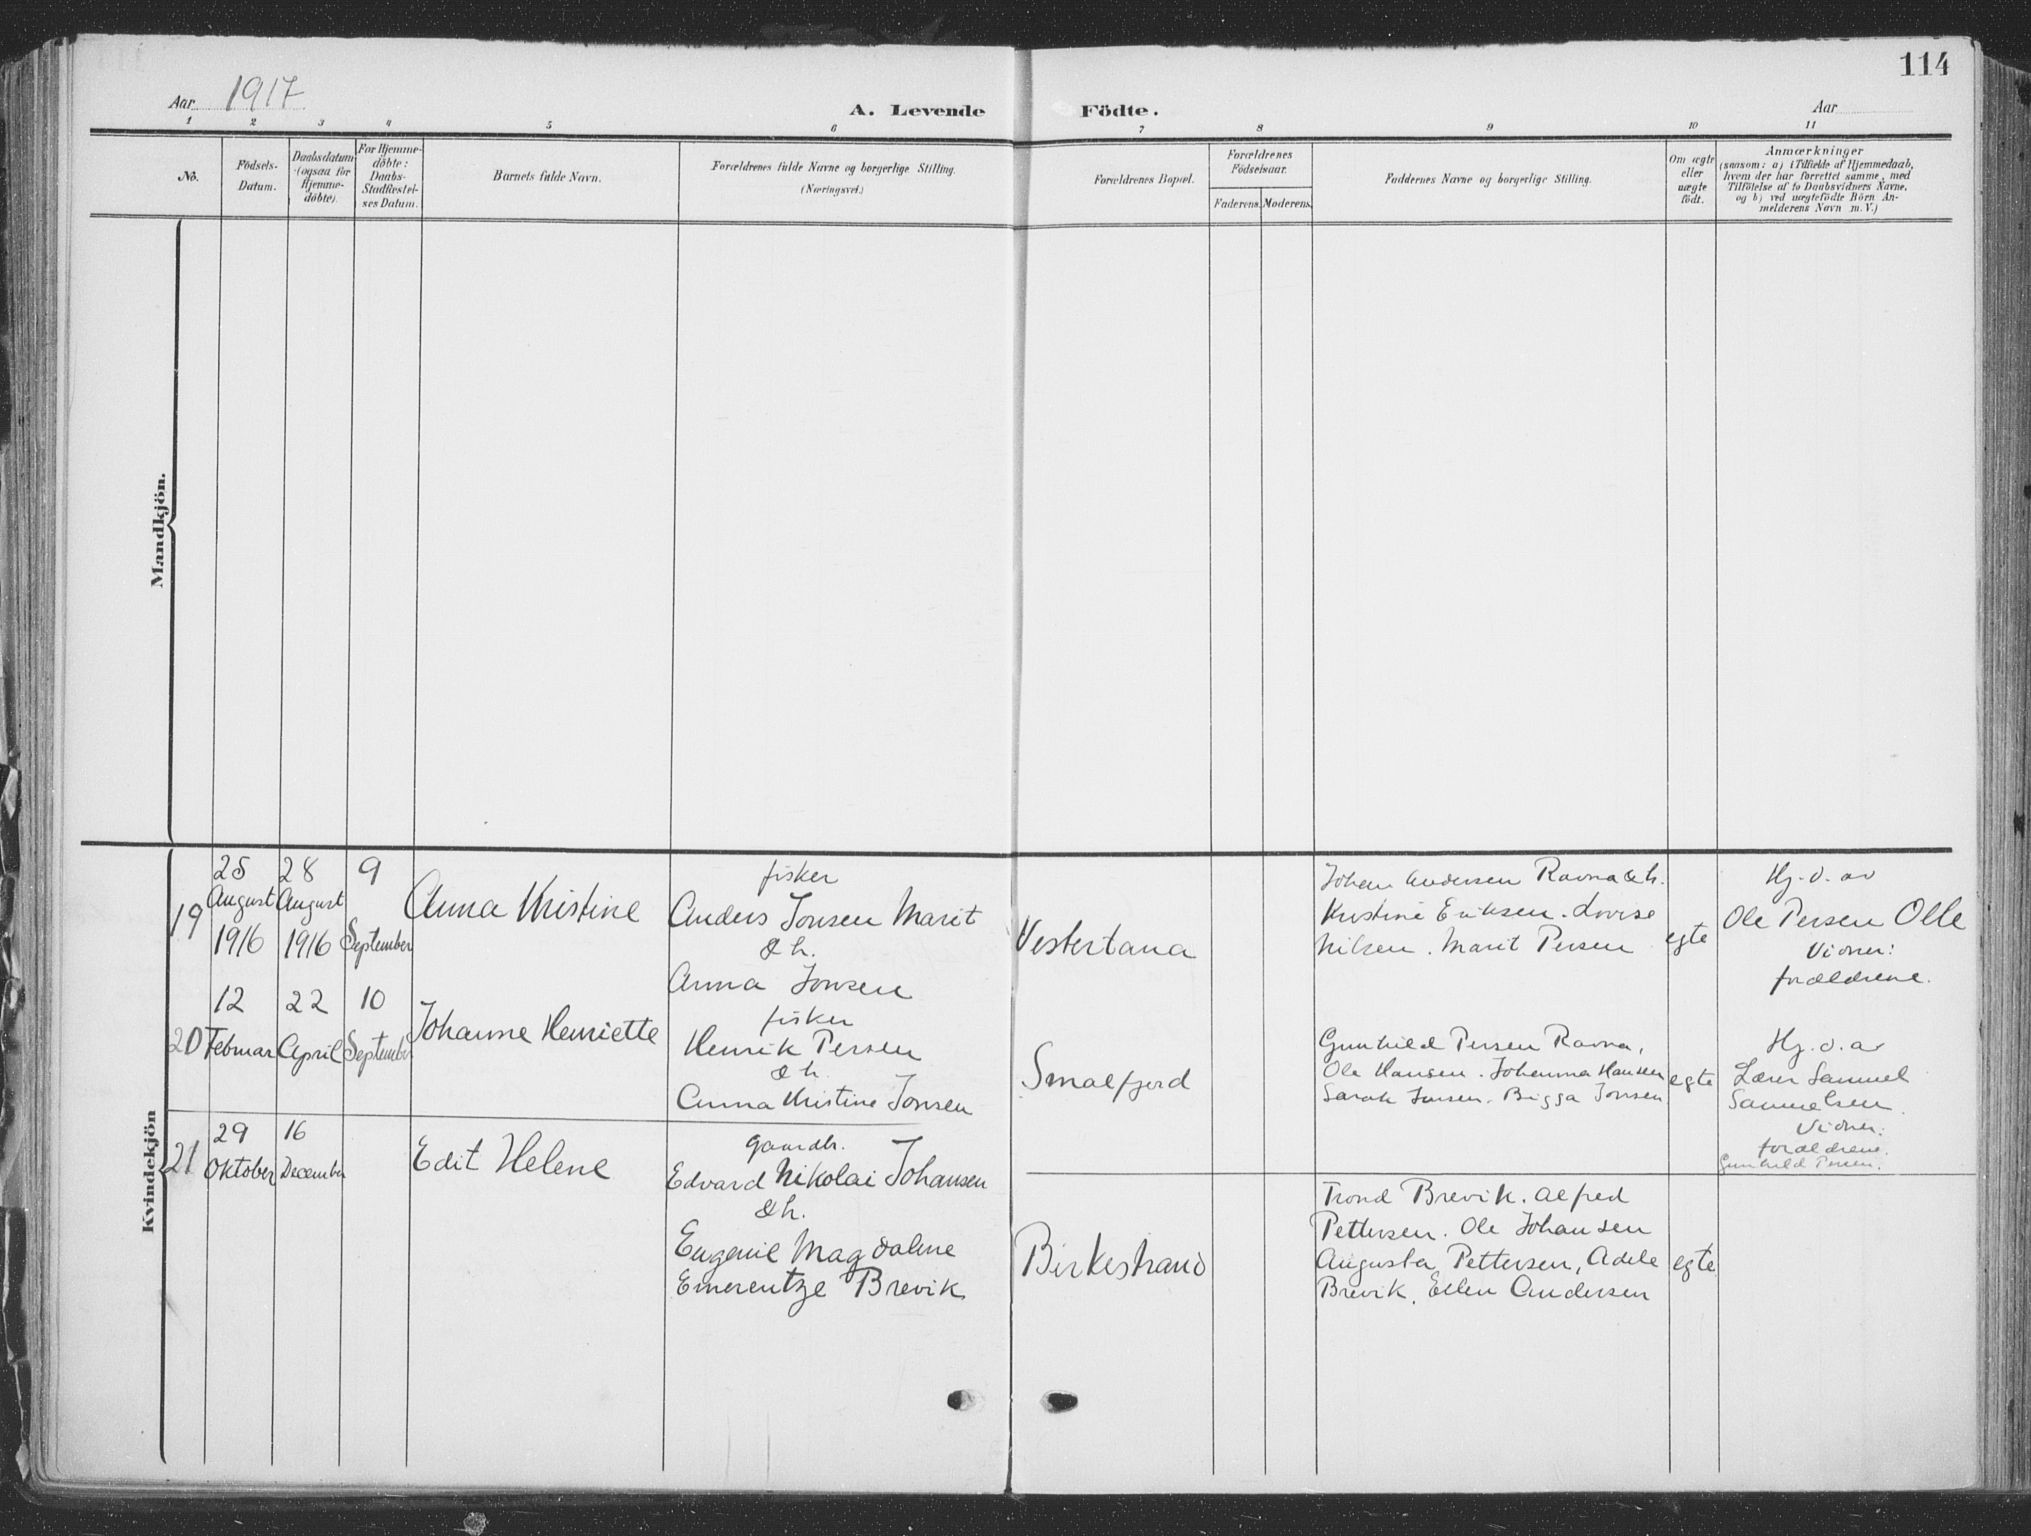 114
Aar 1917
A. Levende Födte.
Aar
1 2 3 4 5 6 7 8 9 10 11
No.
Födsels-
Datum.
Daabsdatum
(ogsaa for
Hjemme-
døbte).
For Hjemme-
döbte:
Daabs-
Stadfæstel-
ses Datum.
Barnets fulde Navn.
Forældrenes fulde Navne og borgerlige Stilling.
(Næringsvei.)
Forældrenes Bopæl.
Forældrenes
Födselsaar.
Faderens.
Moderens.
Faddernes Navne og borgerlige Stilling.
Om ægte
eller
uægte
födt.
Anmærkninger
(saasom: a) i Tilfælde af Hjemmedaab,
hvem der har forrettet samme, med
Tilföielse af to Daabsvidners Navne,
og b) ved uægtefödte Börn An-
melderens Navn m. V.)
Mandkjön.
Kvindekjön
19
25
August
1916
28
August
1916
9
September
Anna Kristine
fisker
Anders Jonsen Marit
& h.
Anna Jonsen
Vestertana
Johan Andersen Ravna & h.
Kristine Eriksen. Lovise
Nilsen. Marit Persen
egte
Hj. d. av
Ole Persen Olle
Vidner:
forældrene.
20
12
Februar
22
April
10
September
Johanne Henriette
fisker
Henrik Persen
& h.
Anna Kristine Jonsen
Smalfjord
Gunhild Persen Ravna,
Ole Hansen. Johanna Hansen
Sarak Jonsen. Bigga Jonsen
egte
Hj. d. av
Lærer Samuel
Samuelsen.
Vidner:
forældrene.
Gunhild Persen.
21
29
Oktober
16
December
Edit Helene
gaardbr.
Edvard Nikolai Johansen
& h.
Eugenie Magdalene
Emerentze Brevik
Birkestrand
Trond Brevik. Alfred
Pettersen. Ole Johansen
Augusta Pettersen, Adele
Brevik, Ellen Andersen
egte